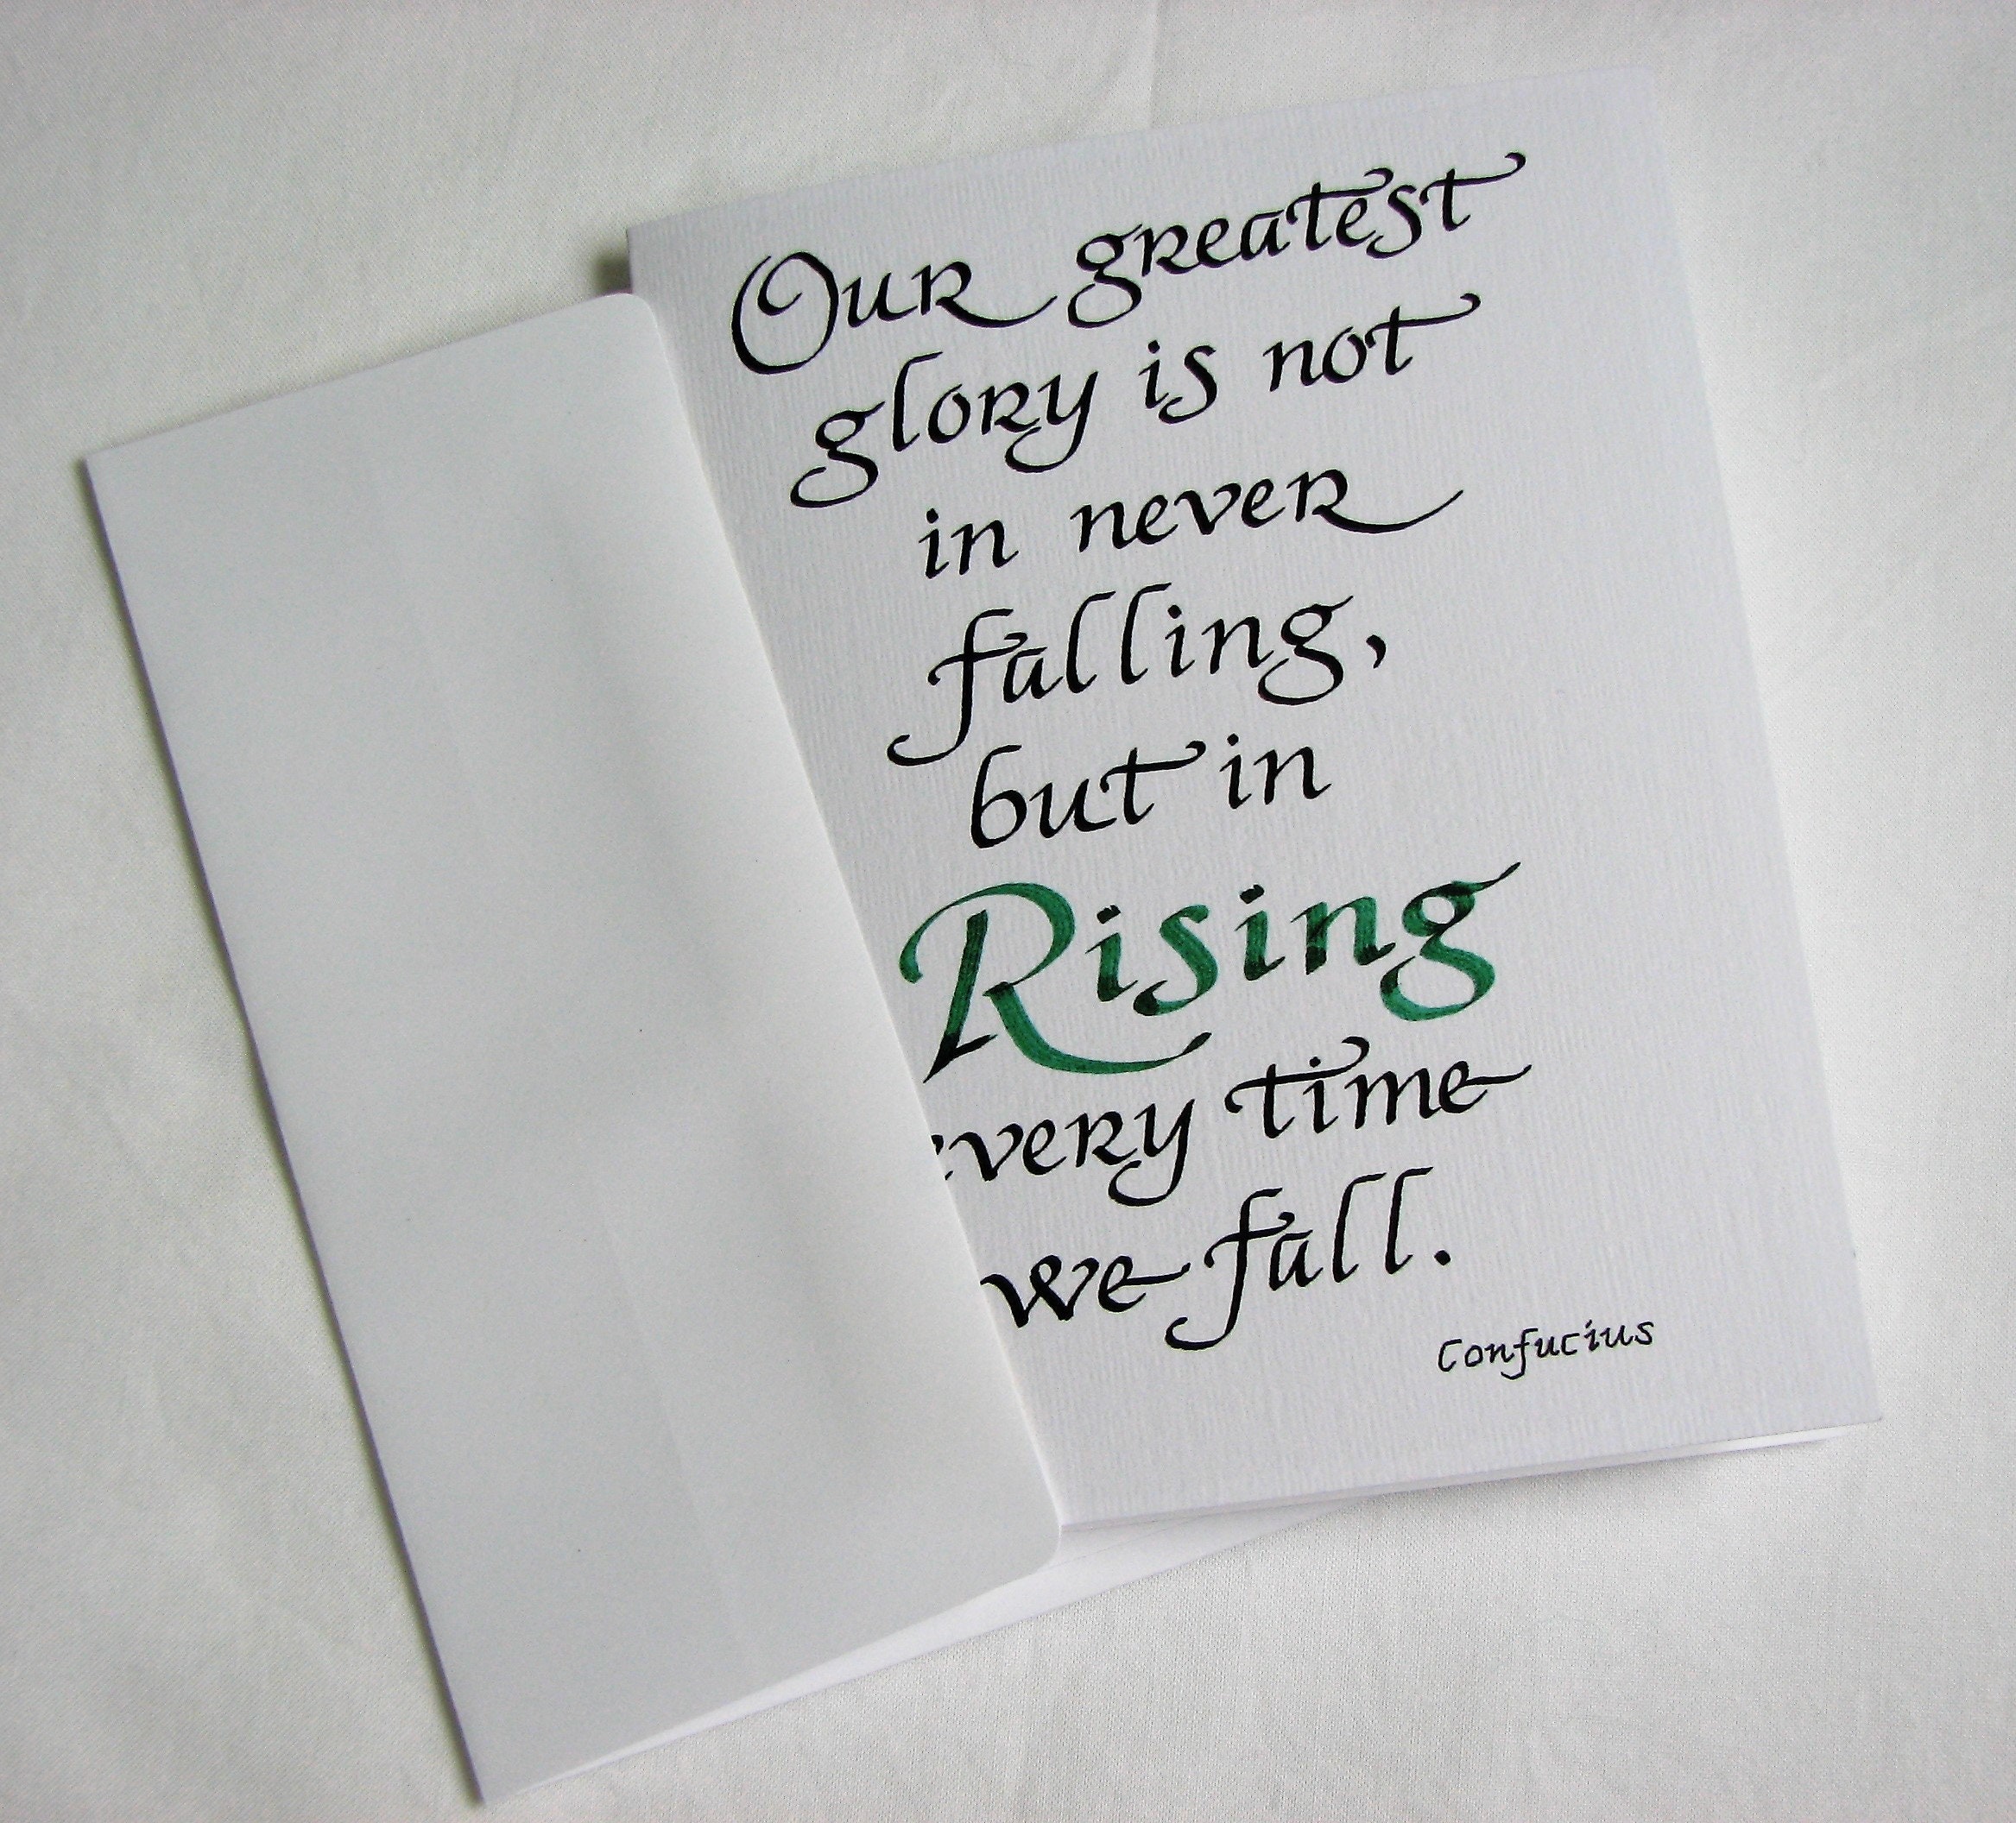 Our greatest
glory is not
in never
falling,
but in
Rising
every time
we fall.
Confucius